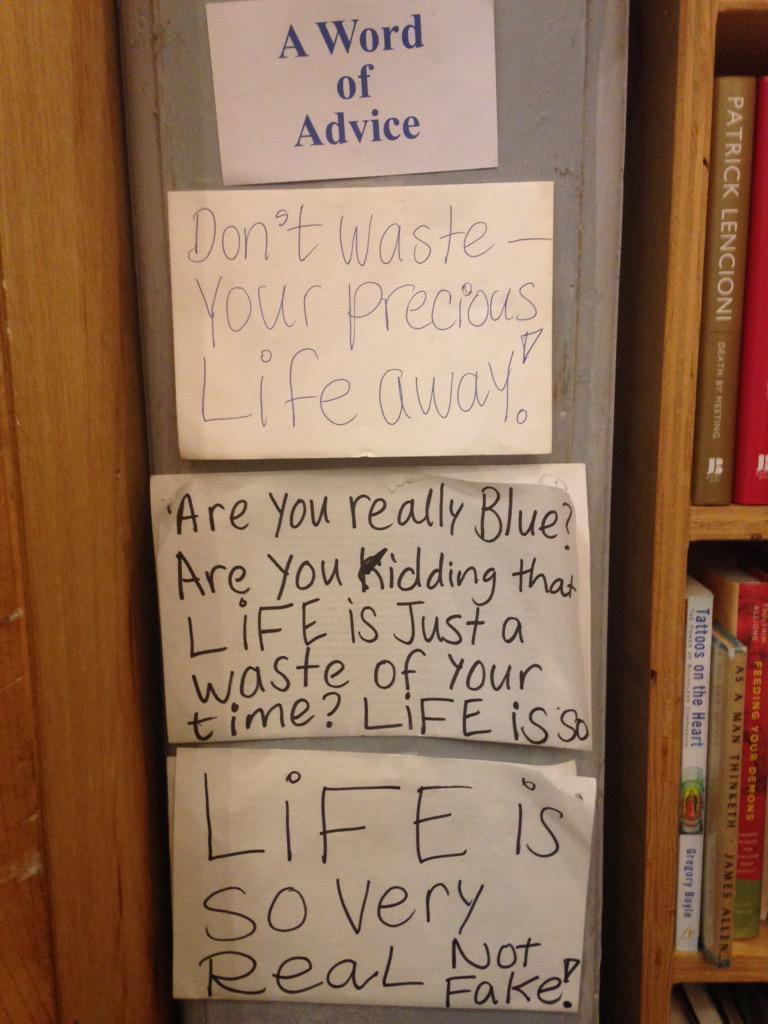 A Word
of
Advice
Don't waste —
your precious
Life away!
Are you really Blue?
Are you Kidding that
LiFE is Just a
waste of your
time? LiFE is so
LiFE is
so very
Real Not
Fake!
PATRICK LENCIONI
DEATH BY MEETING
JB
JB
Tattoos on the Heart
Gregory Boyle
AS A MAN THINKETH · JAMES ALLEN
ALLIONE
FEEDING YOUR DEMONS